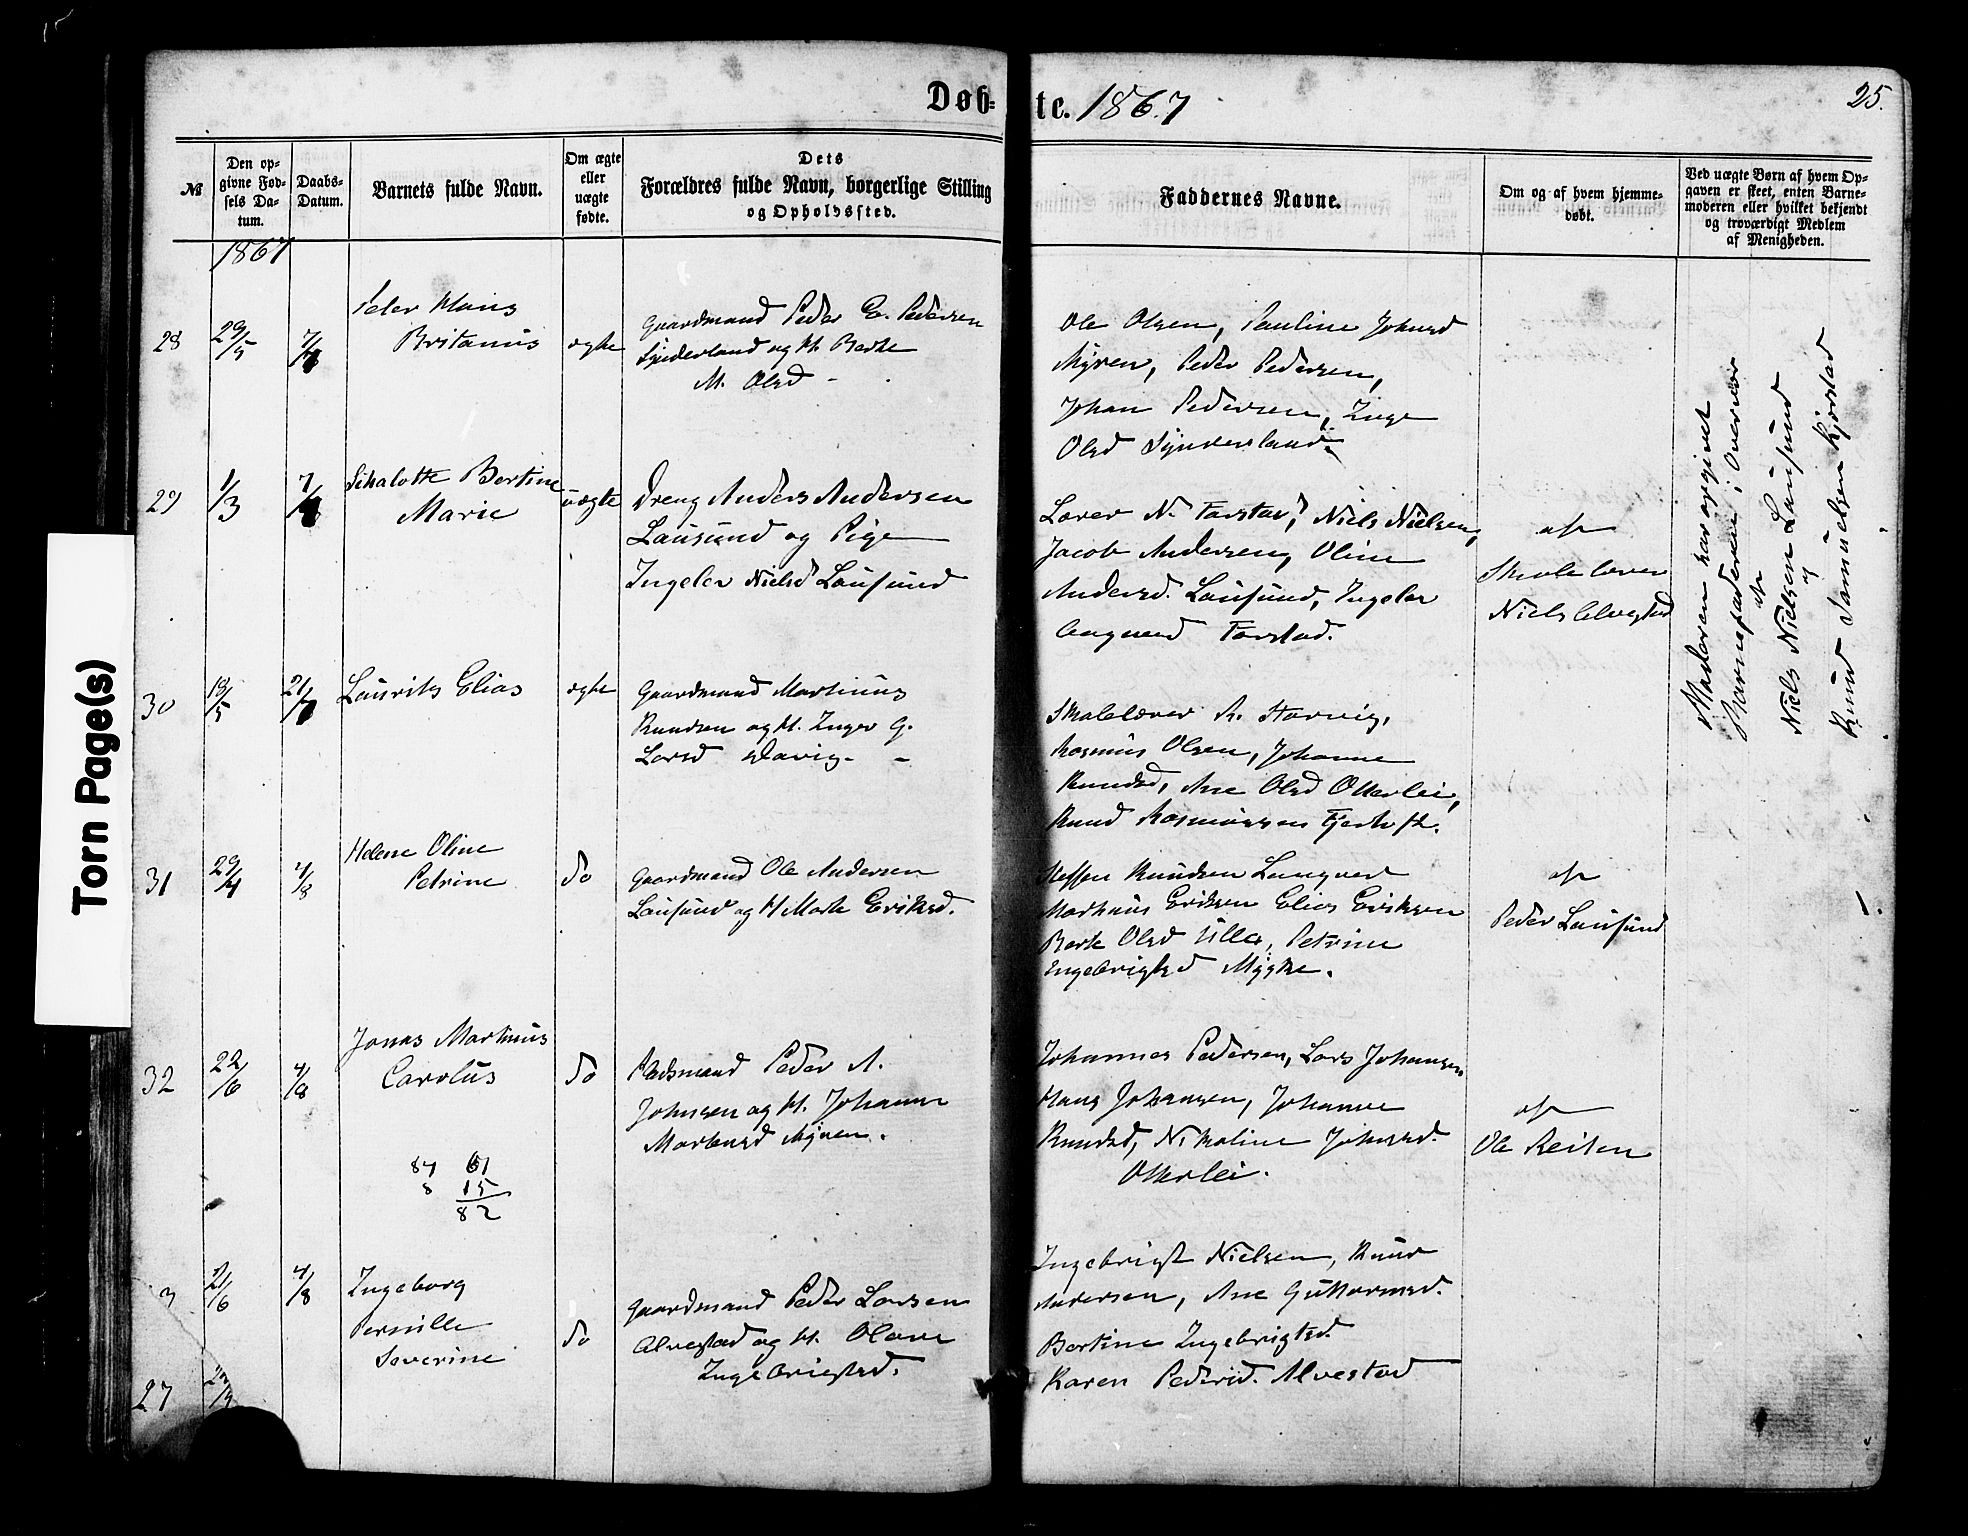 Døb-
te. 1867
25.
№
Den op-
givne Fød-
sels Da-
tum.
Daabs-
Datum.
Barnets fulde Navn.
Om ægte
eller
uægte
fødte.
Dets
Forældres fulde Navn, borgerlige Stilling
og Opholdssted.
Faddernes Navne.
Om og af hvem hjemme-
døbt.
Ved uægte Børn af hvem Op-
gaven er skeet, enten Barne-
moderen eller hvilket bekjendt
og troværdigt Medlem
af Menigheden.
1867
28
29/5
7/7
Peter Hans
Britanus
ægte
Gaardmand Peder E. Pedersen
Synderland og H. Berte
M. Olsd
Ole Olsen, Pauline Johnsd
Myren, Peder Pedersen,
Johan Pedersen, Inge
Olsd Synderland.
29
1/3
7/7
Schalotte Bertine
Marie
uægte
Dreng Anders Andersen
Lausund og Pige
Ingeler Nielsd Lausund
Lærer N. Farstad, Niels Nielsen,
Jacob Andersen, Oline
Andersd. Lausund, Ingeler
Aagaard Farstad.
af
Skolelærer
Niels Alvestad
Moderen har opgivet
Barnefaderen i Overvær
af
Niels Nielsen Lausund
og
Knud Samuelsen Kjørstad
30
18/5
21/7
Laurits Elias
ægte
Gaardmand Martinus
Knudsen og H. Inger G.
Larsd Davig.
Skolelærer A. Storvig,
Rasmus Olsen, Johanne
Knudsd, Ane Olsd Otterlei,
Knud Rasmussen Fjertoft.
31
29/4
4/8
Helene Oline
Petrine
do
Gaardmand Ole Andersen
Lausund og H Marte Eriksd.
Steffen Knudsen Langvad
Mathias Eriksen Elias Eriksen
Berte Olsd Ulla, Petrine
Ingebrigtsd Mykle.
af
Peder Lausund
1.
32
22/6
4/8
Jonas Martinus
Carolus
do
Pladsmand Peder A.
Johnsen og H. Johanne
Martensd Myren.
Johannes Pedersen, Lars Johansen
Hans Johansen, Johanne
Knudsd, Nikoline Johnsd.
Otterlei.
af
Ole Reiten
87 61
8 15
82
3
21/6
4/8
Ingeborg
Pernille
Severine
do
Gaardmand Peder Larsen
Alvestad og H. Olave
Ingebrigtsd.
Ingebrigt Nielsen, Knud
Andersen, Ane Guttormsd.
Bertine Ingebrigtsd.
Karen Pedersd. Alvestad
27
Torn Page(s)